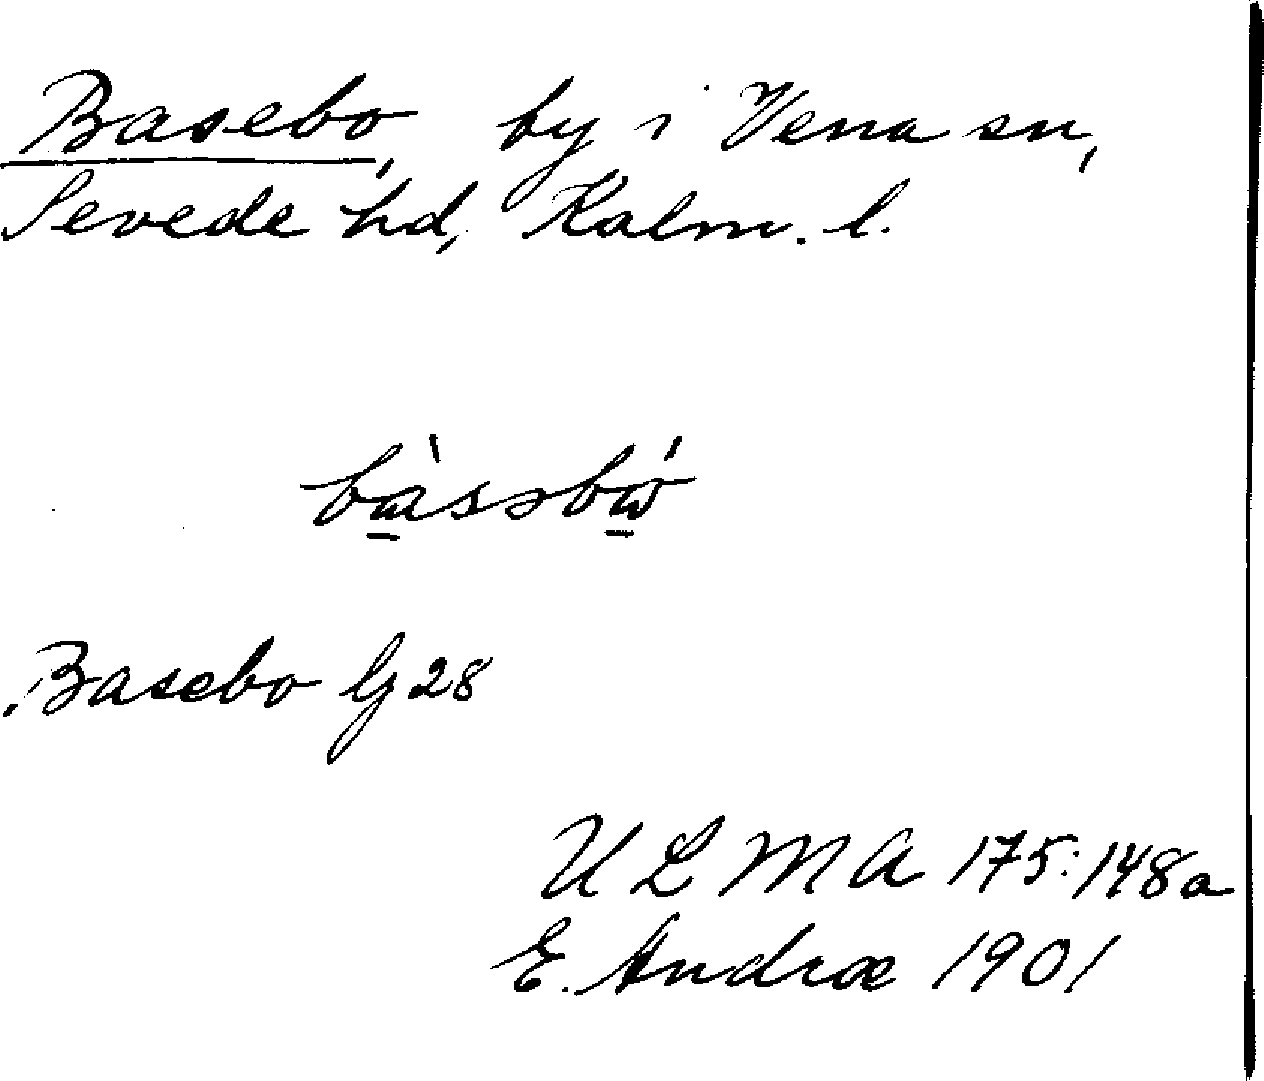 Basebo, by i Vena sn,
Sevede hd, Kalm. l.
bàssbó
Basebo Gj 28
ULMA 175:148a
E. Andræ 1901